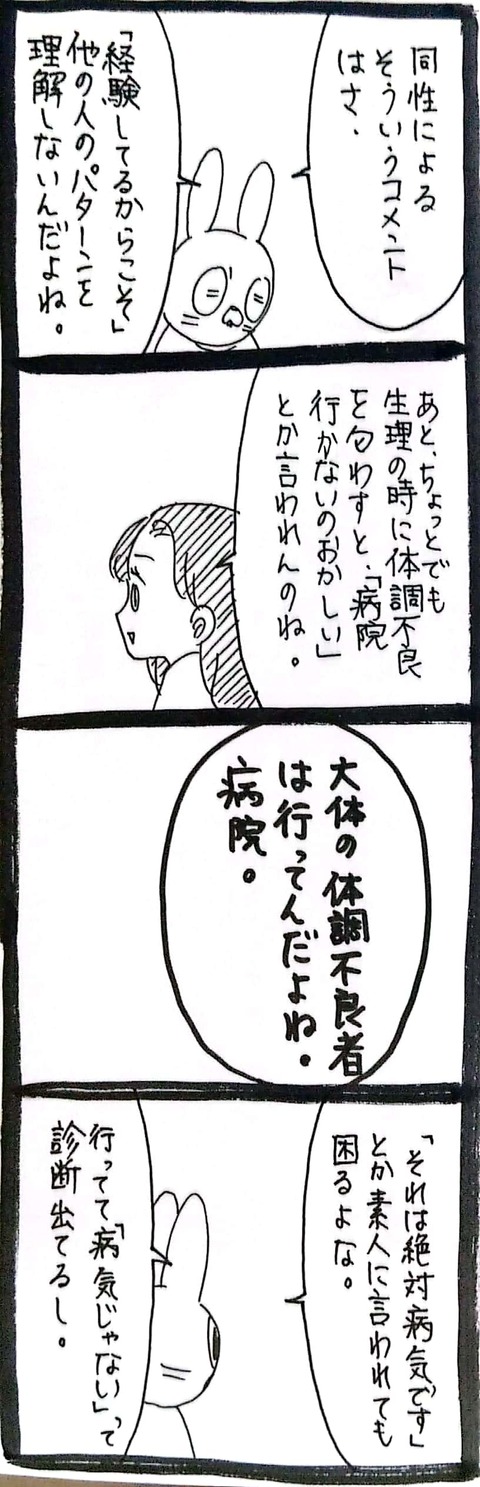 同性による
そういうコメント
はさ、
「経験してるからこそ」
他の人のパターンを
理解しないんだよね。
あと、ちょっとでも
生理の時に体調不良
を匂わすと、「病院
行かないのおかしい」
とか言われんのね。
大体の体調不良者
は行ってんだよね。
病院。
「それは絶対病気です」
とか素人に言われても
困るよな。
行ってて「病気じゃない」って
診断出てるし。